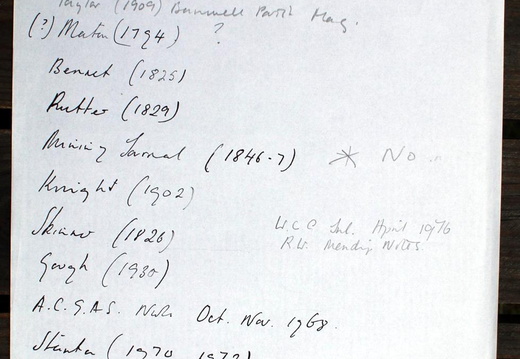 Taylor (1909) Banwell Parish Mag.
(?) Martin (1794) ?
Bennet (1825)
Rutter (1829)
Mining Journal (1846-7) * No
Knight (1902)
Skinner (1826)
W.C.C. Jnl. April 1976
R.W. Mendip Notes.
Gough (1930)
A.C.G.A.S. Nwsl. Oct. Nov. 1968.
Stanton (1970, 1972)